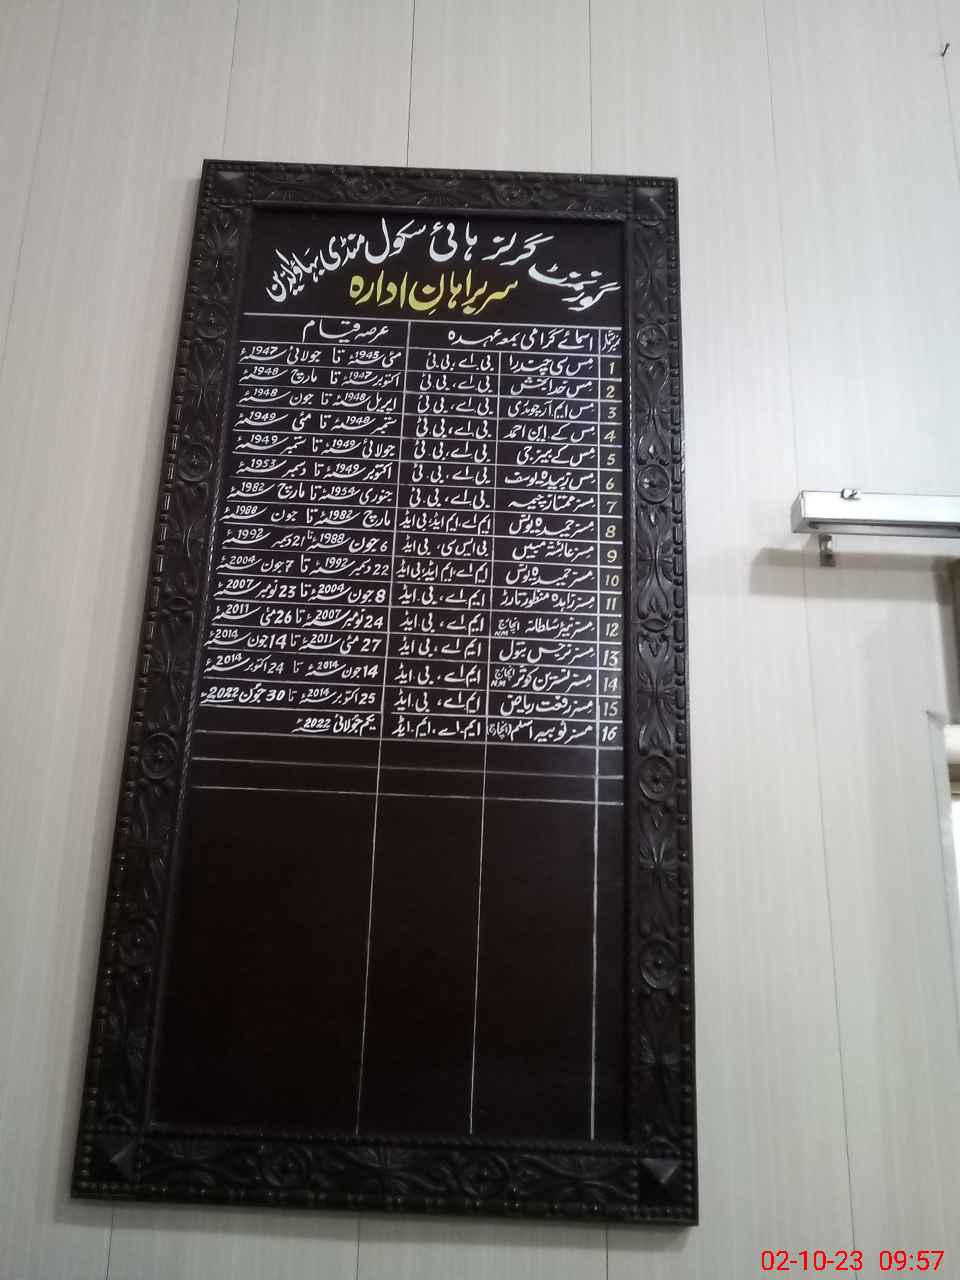 گورنمنٹ گرلز ہائی سکول منڈی بہاؤالدین
سربراہانِ ادارہ
نمبر شمار اسمائے گرامی بمعہ عہدہ عرصہ قیام
1 مس سی چندرا بی۔اے، بی۔ٹی مئی 1945ء تا جولائی 1947ء
2 مس خدا بخش بی۔اے، بی۔ٹی اکتوبر 1947ء تا مارچ 1948ء
3 مس ایم۔آر بی۔اے، بی۔ٹی اپریل 1948ء تا جون 1948ء
4 مس کے۔این احمد بی۔اے، بی۔ٹی ستمبر 1948ء تا مئی 1949ء
5 مس کے بینرجی بی۔اے، بی۔ٹی جولائی 1949ء تا ستمبر 1949ء
6 مس زبیدہ یوسف بی۔اے، بی۔ٹی اکتوبر 1949ء تا دسمبر 1953ء
7 مسز ممتاز چیمہ بی۔اے، بی۔ٹی جنوری 1954ء تا مارچ 1982ء
8 مسز حمیدہ یونس ایم۔اے، ایم ایڈ، بی ایڈ مارچ 1982ء تا جون 1988ء
9 مسز عائشہ مبین بی ایس سی، بی ایڈ 6 جون 1988ء تا 21 دسمبر 1992ء
10 مسز حمیدہ یونس ایم۔اے، ایم ایڈ، بی ایڈ 22 دسمبر 1992ء تا 7 جون 2004ء
11 مسز زاہدہ منظور تارڑ ایم۔اے، بی۔ایڈ 8 جون 2004ء تا 23 نومبر 2007ء
12 مسز نیئر سلطانہ انچارج NM ایم۔اے، بی۔ایڈ 24 نومبر 2007ء تا 26 مئی 2011ء
13 مسز نرجس بتول ایم۔اے، بی۔ایڈ 27 مئی 2011ء تا 14 جون 2014ء
14 مسز نسترین کوثر انچارج NM ایم۔اے، بی۔ایڈ 14 جون 2014ء تا 24 اکتوبر 2014ء
15 مسز رفعت ریاض ایم۔اے، بی۔ایڈ 25 اکتوبر 2014ء تا 30 جون 2022ء
16 مسز ثوبیہ اسلم (انچارج) ایم۔اے، ایم۔ایڈ یکم جولائی 2022ء
02-10-23 09:57